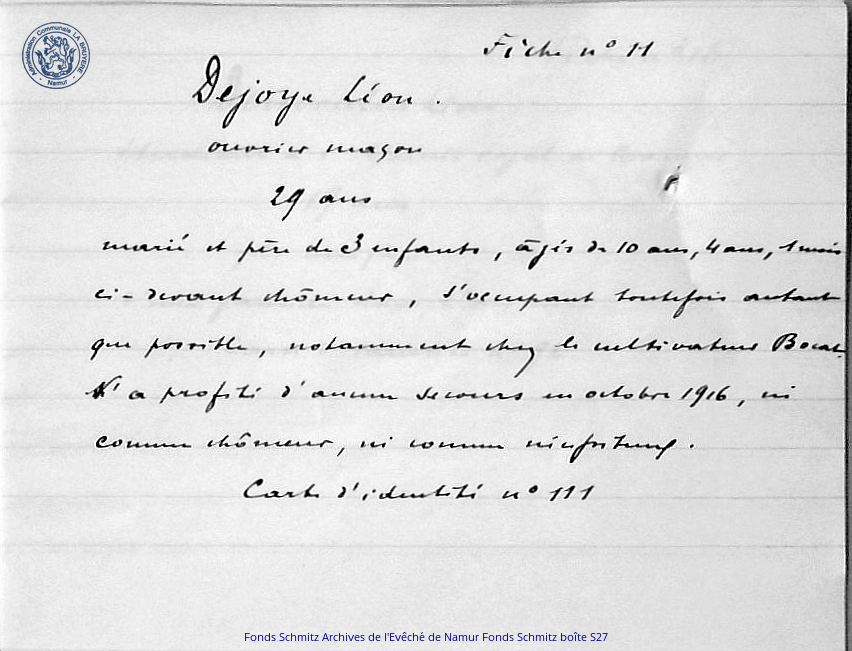 Administration Communale LA BRUYERE
- Namur -
Fiche n° 11
Dejoye Léon.
ouvrier maçon
29 ans
marié et père de 3 enfants, âgés de 10 ans, 4 ans, 1 mois
ci-devant chômeur, s'occupant toutefois autant
que possible, notamment chez le cultivateur
N'a profité d'aucun secours en octobre 1916, ni
comme chômeur, ni comme
Carte d'identité n° 111
Fonds Schmitz Archives de l'Evêché de Namur Fonds Schmitz boîte S27